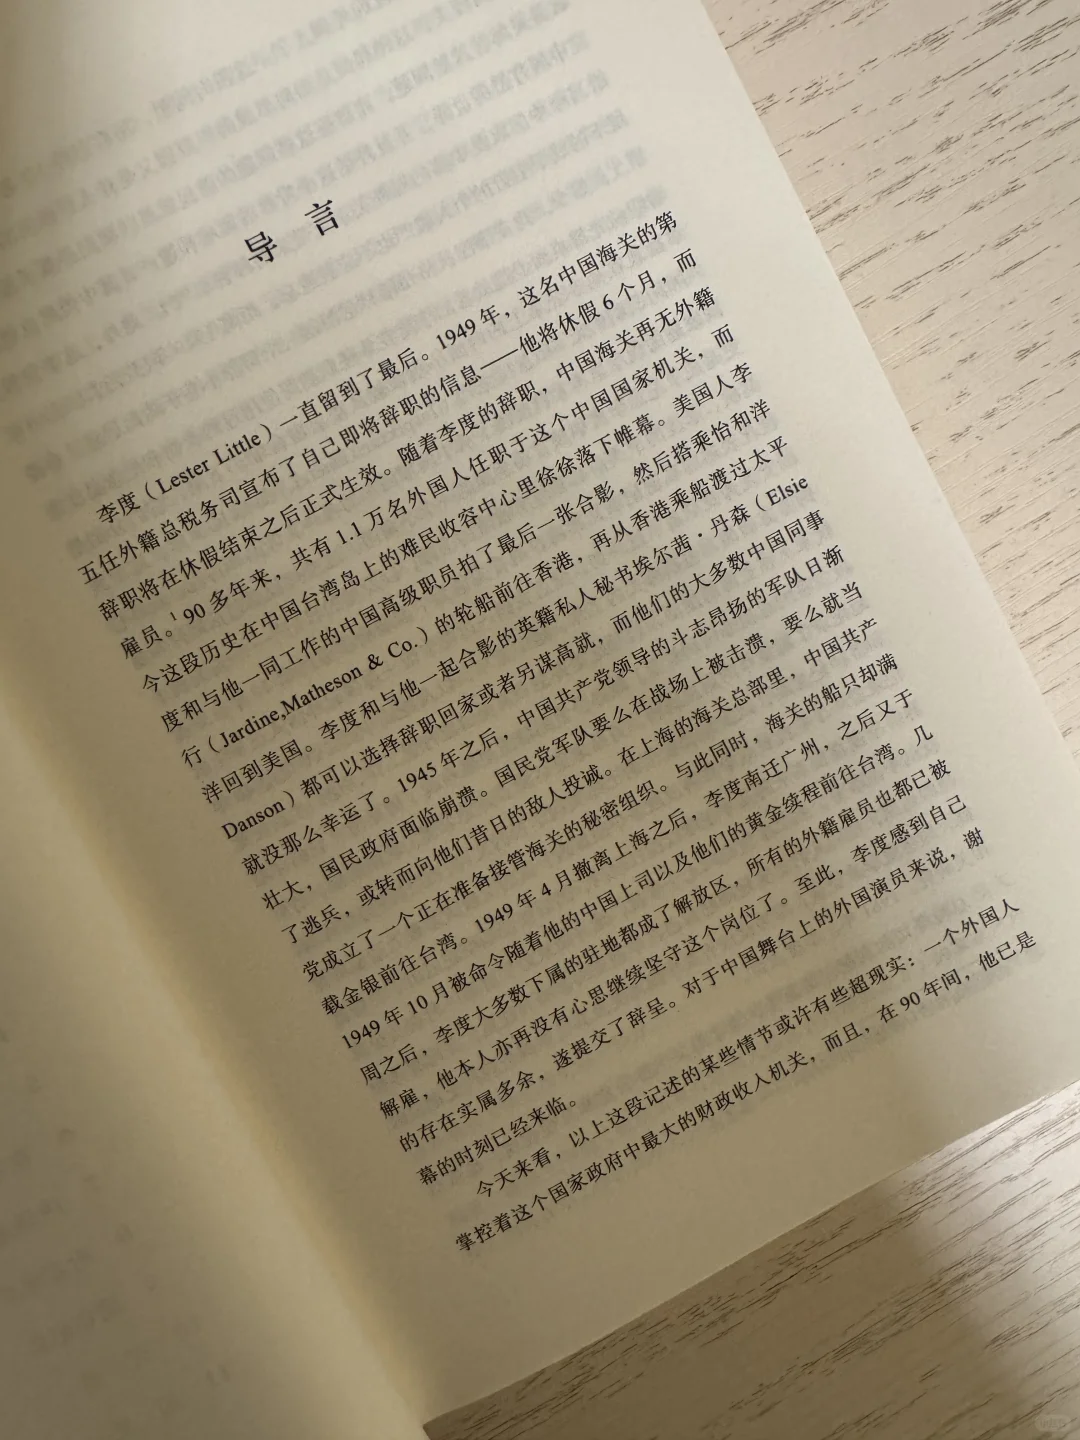 导 言
李度（Lester Little）一直留到了最后。1949 年，这名中国海关的第
五任外籍总税务司宣布了自己即将辞职的信息——他将休假 6 个月，而
辞职将在休假结束之后正式生效。随着李度的辞职，中国海关再无外籍
雇员。1 90 多年来，共有 1.1 万名外国人任职于这个中国国家机关，而
今这段历史在中国台湾岛上的难民收容中心里徐徐落下帷幕。美国人李
度和与他一同工作的中国高级职员拍了最后一张合影，然后搭乘怡和洋
行（Jardine,Matheson & Co.）的轮船前往香港，再从香港乘船渡过太平
洋回到美国。李度和与他一起合影的英籍私人秘书埃尔茜·丹森（Elsie
Danson）都可以选择辞职回家或者另谋高就，而他们的大多数中国同事
就没那么幸运了。1945 年之后，中国共产党领导的斗志昂扬的军队日渐
壮大，国民政府面临崩溃。国民党军队要么在战场上被击溃，要么就当
了逃兵，或转而向他们昔日的敌人投诚。在上海的海关总部里，中国共产
党成立了一个正在准备接管海关的秘密组织。与此同时，海关的船只却满
载金银前往台湾。1949 年 4 月撤离上海之后，李度南迁广州，之后又于
1949 年 10 月被命令随着他的中国上司以及他们的黄金续程前往台湾。几
周之后，李度大多数下属的驻地都成了解放区，所有的外籍雇员也都已被
解雇，他本人亦再没有心思继续坚守这个岗位了。至此，李度感到自己
的存在实属多余，遂提交了辞呈。对于中国舞台上的外国演员来说，谢
幕的时刻已经来临。
今天来看，以上这段记述的某些情节或许有些超现实：一个外国人
掌控着这个国家政府中最大的财政收入机关，而且，在 90 年间，他已是